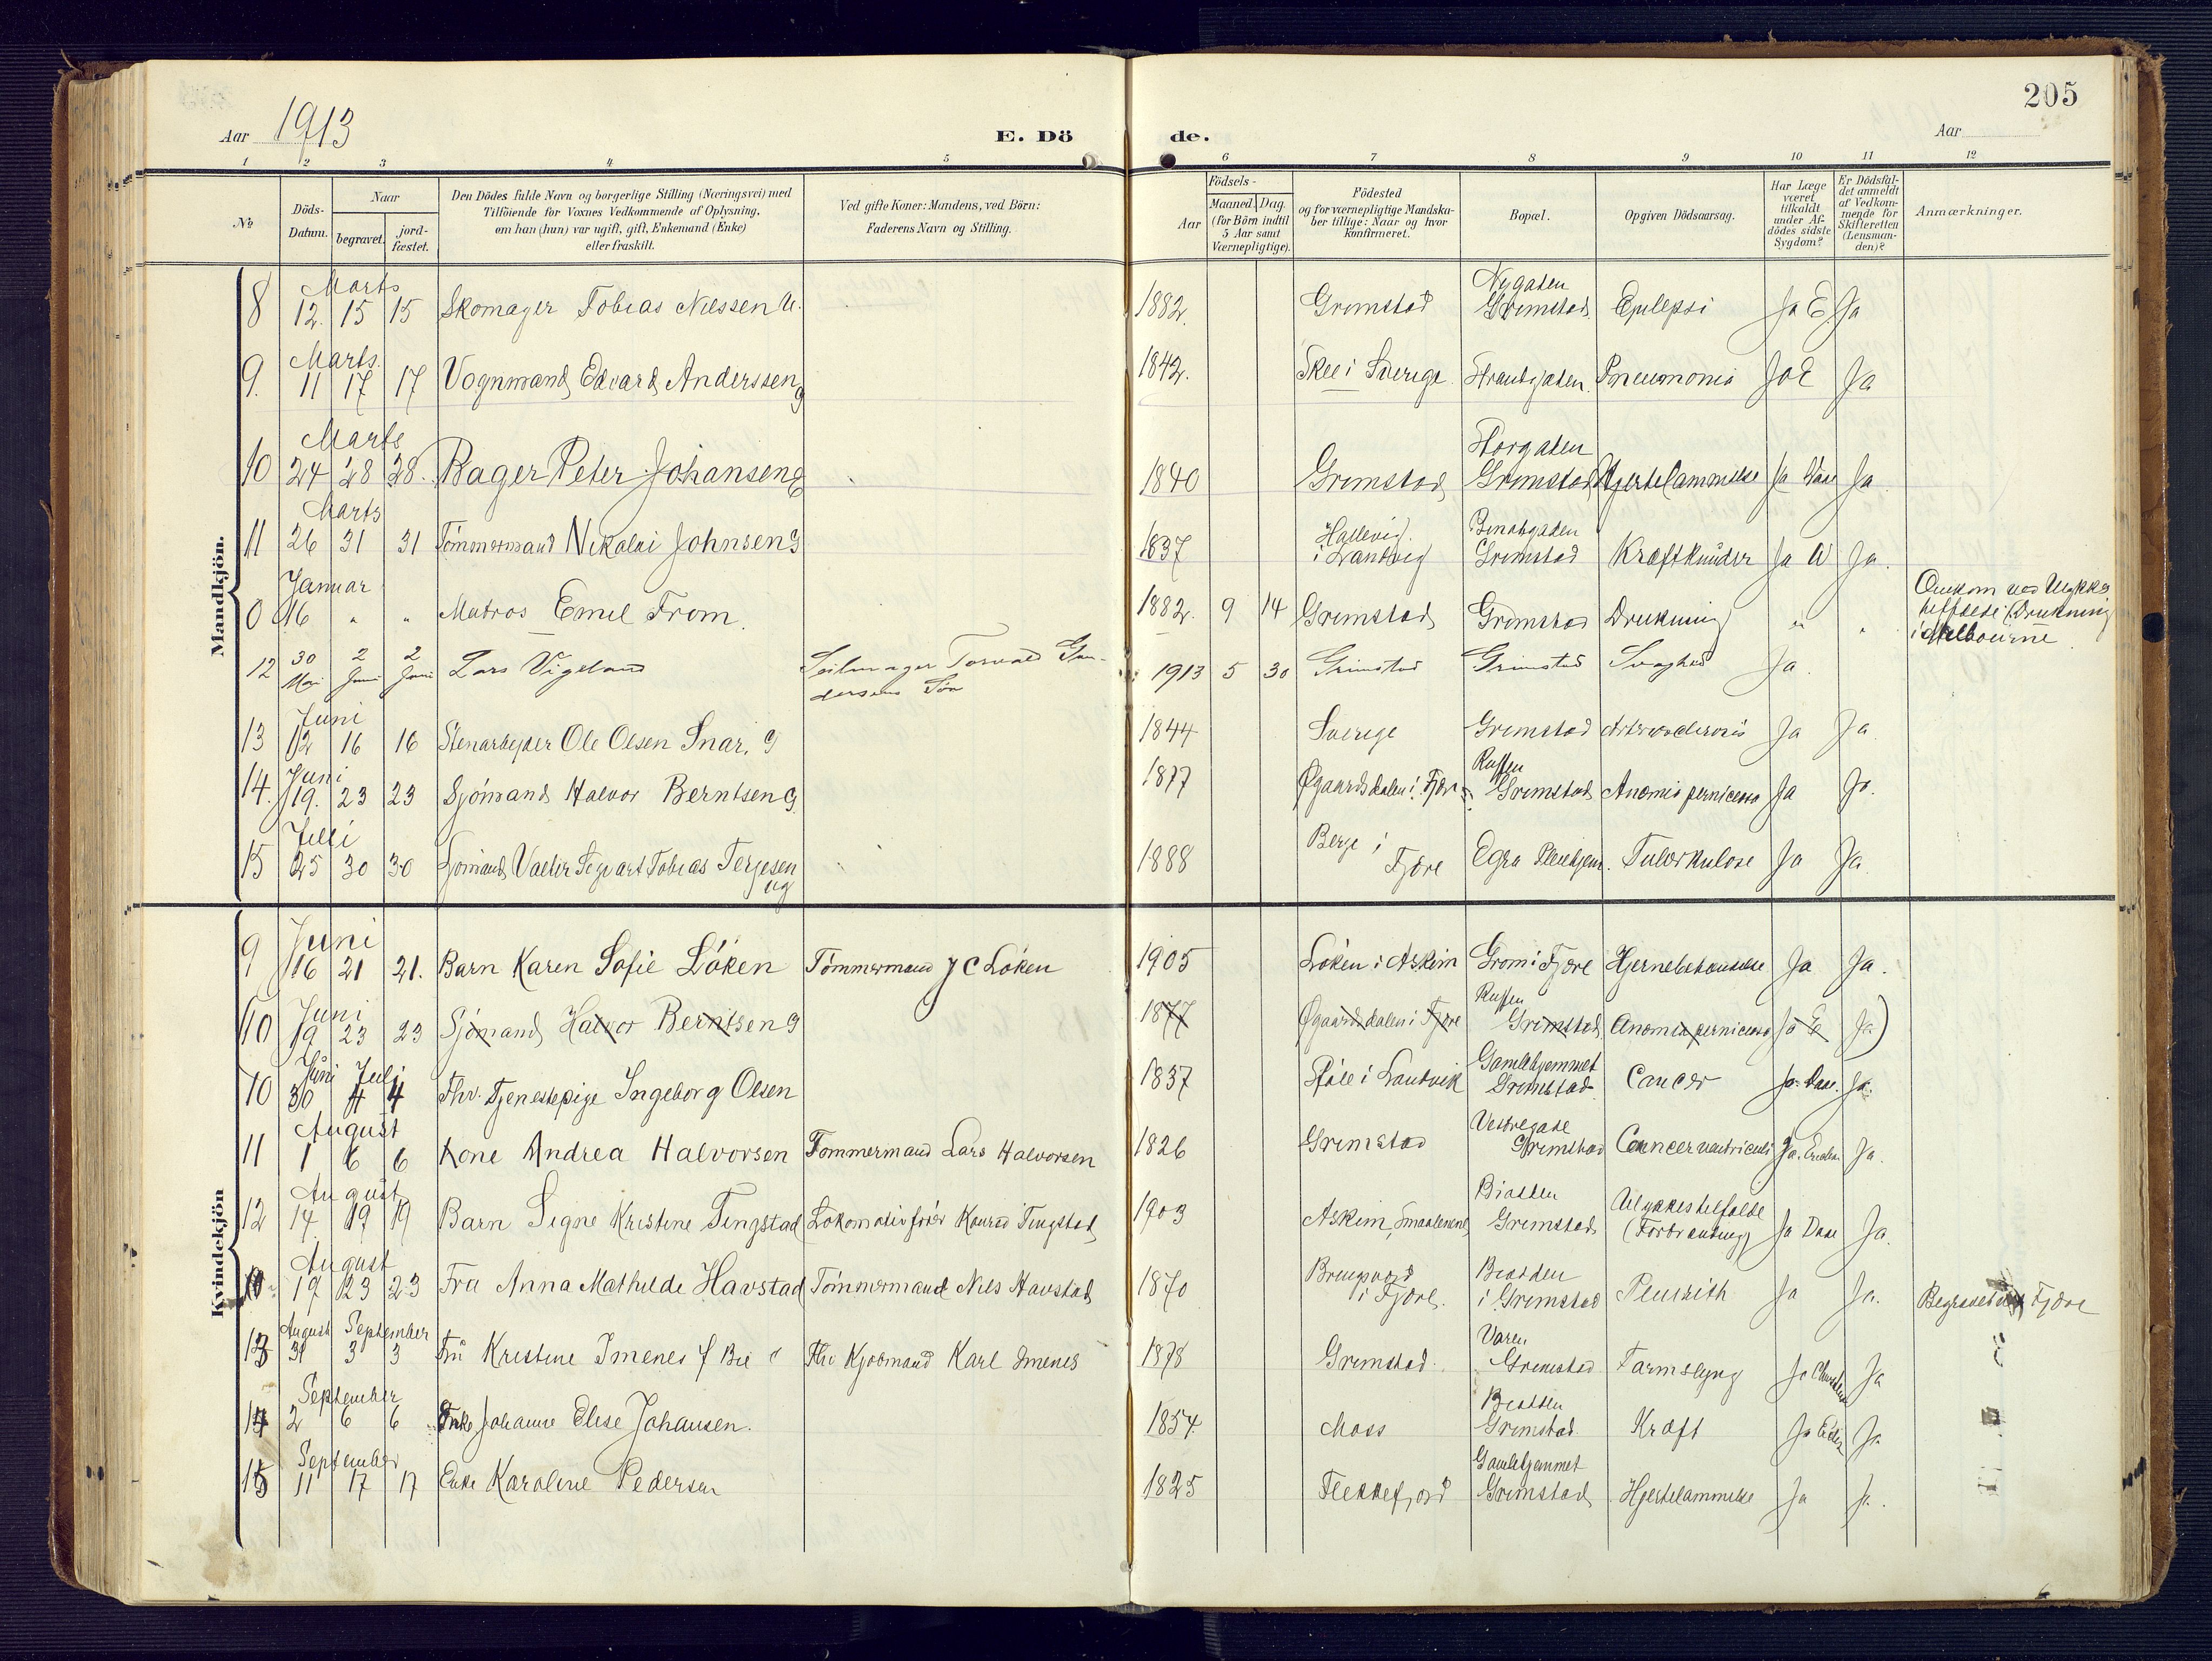 205
Aar 1913
E. Dö de.
Aar
1 2 3 4 5 6 7 8 9 10 11 12
No
Döds-
Datum.
Naar
begravet.
jord-
fæstet.
Den Dödes fulde Navn og borgerlige Stilling (Næringsvei) med
Tilföiende for Voxnes Vedkommende af Oplysning,
om han (hun) var ugift, gift, Enkemand (Enke)
eller fraskilt.
Ved gifte Koner: Mandens, ved Börn:
Faderens Navn og Stilling.
Födsels-
Aar
Maaned. Dag.
(for Börn indtil
5 Aar samt
Værnepligtige).
Födested
og for værnepligtige Mandska-
ber tillige: Naar og hvor
konfirmeret.
Bopæl.
Opgiven Dödsaarsag.
Har Læge
været
tilkaldt
under Af-
dödes sidste
Sygdom?
Er Dödsfal-
det anmeldt
af Vedkom-
mende for
Skifteretten
(Lensman-
den)?
Anmærkninger.
Mandkjön.
Marts Nygaden
8 12. 15 15 Skomager Tobias Nilssen U. 1882. Grimstad Grimstad Epilepsi Ja E. Ja
Marts.
9. 11 17 17 Vognmand Edvard Anderssen g 1842. Skee i Sverige Strandgaden Pneumonia Ja E Ja
Marts Storgaden
10 24 28 28. Bager Peter Johansen g 1840 Grimstad Grimstad Hjertelammelse Ja Daae Ja
Marts Hallevig
11 26 31 31 Tömmermand Nikolai Johnsen g 1837 i Landvig Grimstad Kræftknuder Ja Ja.
Januar Omkom ved Ulykkes
0 16 " " Matros Emil From. 1882. 9 14 Grimstad Grimstad Drukning " " tilfælde (Drukning
i Melbourne
12 30 Mai 2 Juni 2 Juni Lars Vigeland Seilmager Torvald Gun-
dersens Sön 1913 5 30 Grimstad Grimstad Svaghed Ja.
Juni
13 12 16 16 Stenarbeider Ole Olsen Snar. g 1844 Sverige Grimstad Ja Ja
Juni
14. 19. 23 23 Sjömand Halvor Berntsen g 1877 Øgaardsdalen i Fjære Grimstad Anæmia perniciosa Ja Ja.
Juli Berge i
15 25 30 30 Sjömand Valter Sigvart Tobias Terjesen ug 1888 Fjære Egra Pleiehjem. Tuberkulose Ja Ja
Kvindekjön
Juni
9 16 21 21. Barn Karen Sofie Löken Tömmermand J C Löken 1905 Löken i Askim Grom i Fjære Hjernebetændelse Ja Ja.
Juni
10 19 23 23 Sjömand Halvor Berntsen g 1877 Øgaardsdalen i Fjære Grimstad Anæmia perniciosa Ja E Ja)
Juni Juli Gamlehjemmet
10 30 4 4 Fhv. Tjenestepige Ingeborg Olsen 1837 i Landvik Grimstad Cancer Ja. Daae. Ja.
August Vestregade
11 1 6 6 Kone Andrea Halvorsen Tömmermand Lars Halvorsen 1826 Grimstad Grimstad Cancer ventriculi Ja. Ja.
August Biodden Ulykkestilfælde
12 14 19 19 Barn Signe Kristine Tingstad Lokomotivförer Konrad Tingstad 1903 Askim, Smaalenene Grimstad (Forbrænding) Ja Daae Ja.
August Biodden
19 23 23 Fru Anna Mathilde Havstad Tömmermand Nils Havstad 1870 i Fjære. i Grimstad Pleurith Ja Ja. Begravet Fjære
August September
13 31 3 3 Fru Kristine Imenes f Bie Fhv Kjöbmand Karl Imenes 1878 Grimstad. Grimstad Tarmslyng Ja Ja
September Biodden
14 2 6 6 Enke Johanne Elise Johansen. 1854 Moss Grimstad. Kræft Ja Ja
September Gamlehjemmet
15 11 17 17 Enke Karoline Pedersen 1825 Flekkefjord Grimstad Hjertelammelse Ja Ja.